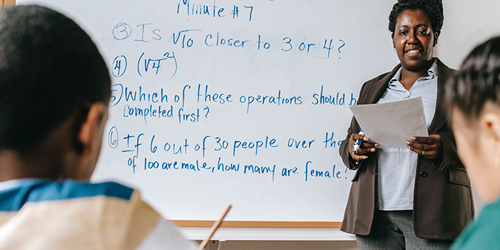 Minute #7
③ Is √10 closer to 3 or 4?
④ (√4)²
⑤ Which of these operations should
completed first?
⑥ If 6 out of 30 people over the
of 100 are male, how many are female?